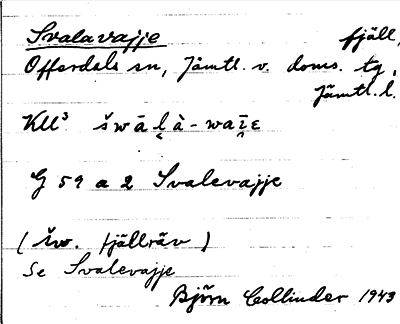 Svalavajje fjäll,
Offerdals sn, Jämtl. v. doms. tg,
Jämtl. l.
KU³ šwāl̨à-waī̯ε
G 59 a 2 Svalevajje
( šw. fjällräv )
Se Svalevajje
Björn Collinder 1943